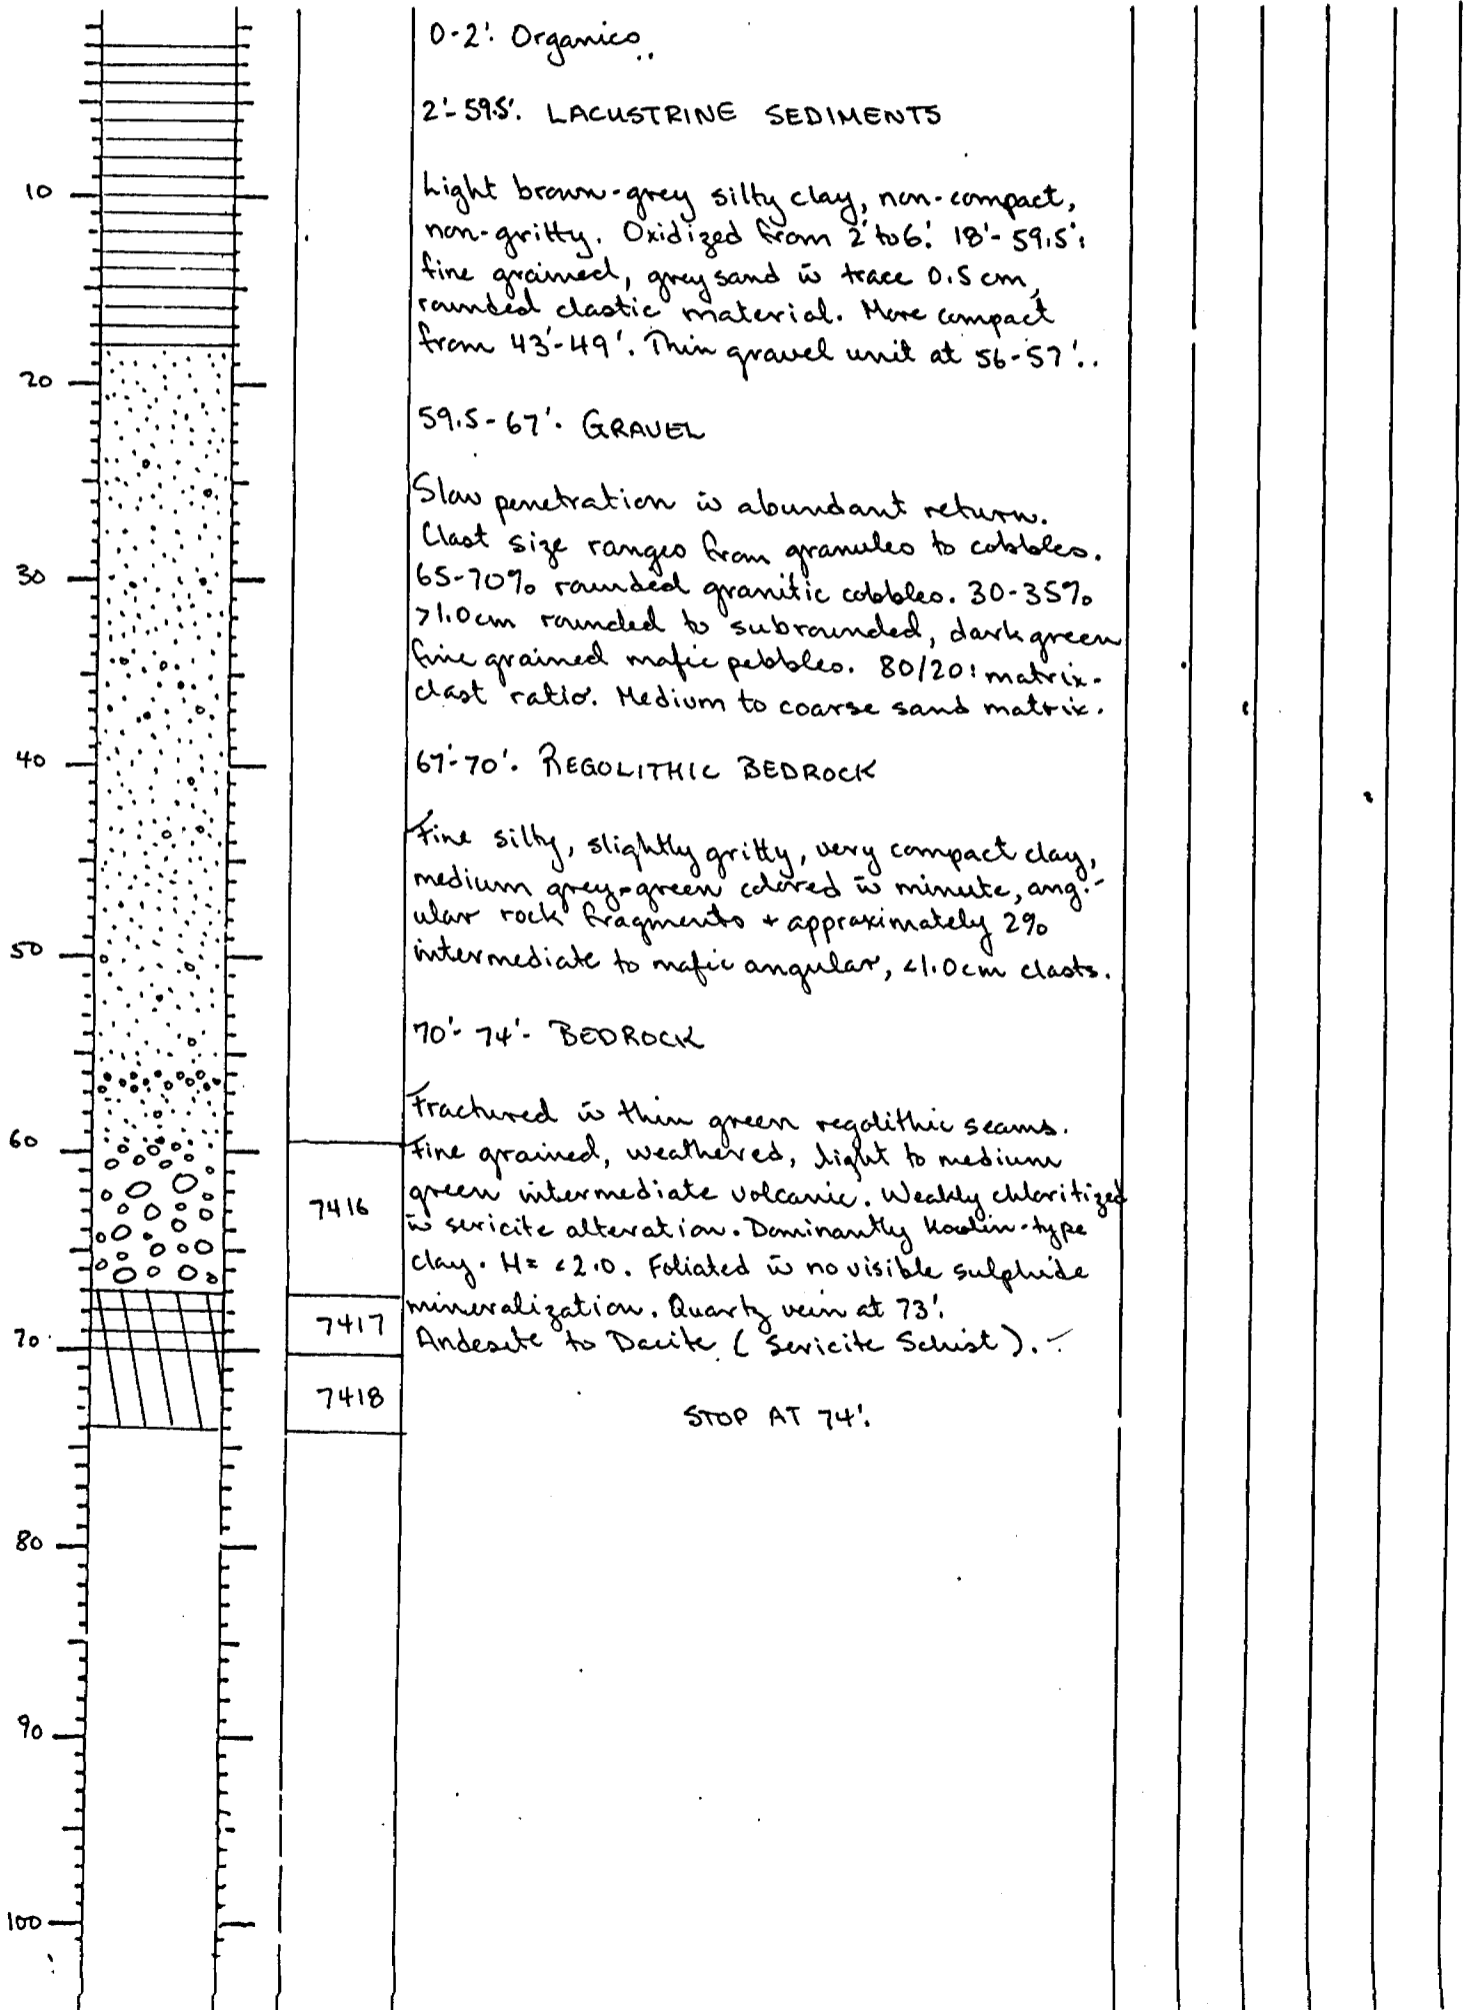 0-2': Organics..
2'-59.5': LACUSTRINE SEDIMENTS
Light brown-grey silty clay, non-compact,
non-gritty. Oxidized from 2' to 6'. 18'-59.5':
fine grained, grey sand w̄ trace 0.5 cm,
rounded clastic material. More compact
from 43'-49'. Thin gravel unit at 56-57'..
59.5-67'. GRAVEL
Slow penetration w̄ abundant return.
Clast size ranges from granules to cobbles.
65-70% rounded granitic cobbles. 30-35%
>1.0cm rounded to subrounded, dark green
fine grained mafic pebbles. 80/20: matrix-
clast ratio. Medium to coarse sand matrix.
67'-70'. REGOLITHIC BEDROCK
Fine silty, slightly gritty, very compact clay,
medium grey-green colored w̄ minute, ang-
ular rock fragments + approximately 2%
intermediate to mafic angular, <1.0cm clasts.
70'-74'- BEDROCK
Fractured w̄ thin green regolithic seams.
Fine grained, weathered, light to medium
green intermediate volcanic. Weakly chloritized
w̄ sericite alteration. Dominantly Kaolin-type
clay. H= <2.0. Foliated w̄ no visible sulphide
mineralization. Quartz vein at 73'.
Andesite to Dacite (Sericite Schist).
STOP AT 74'.
7416
7417
7418
10
20
30
40
50
60
70
80
90
100